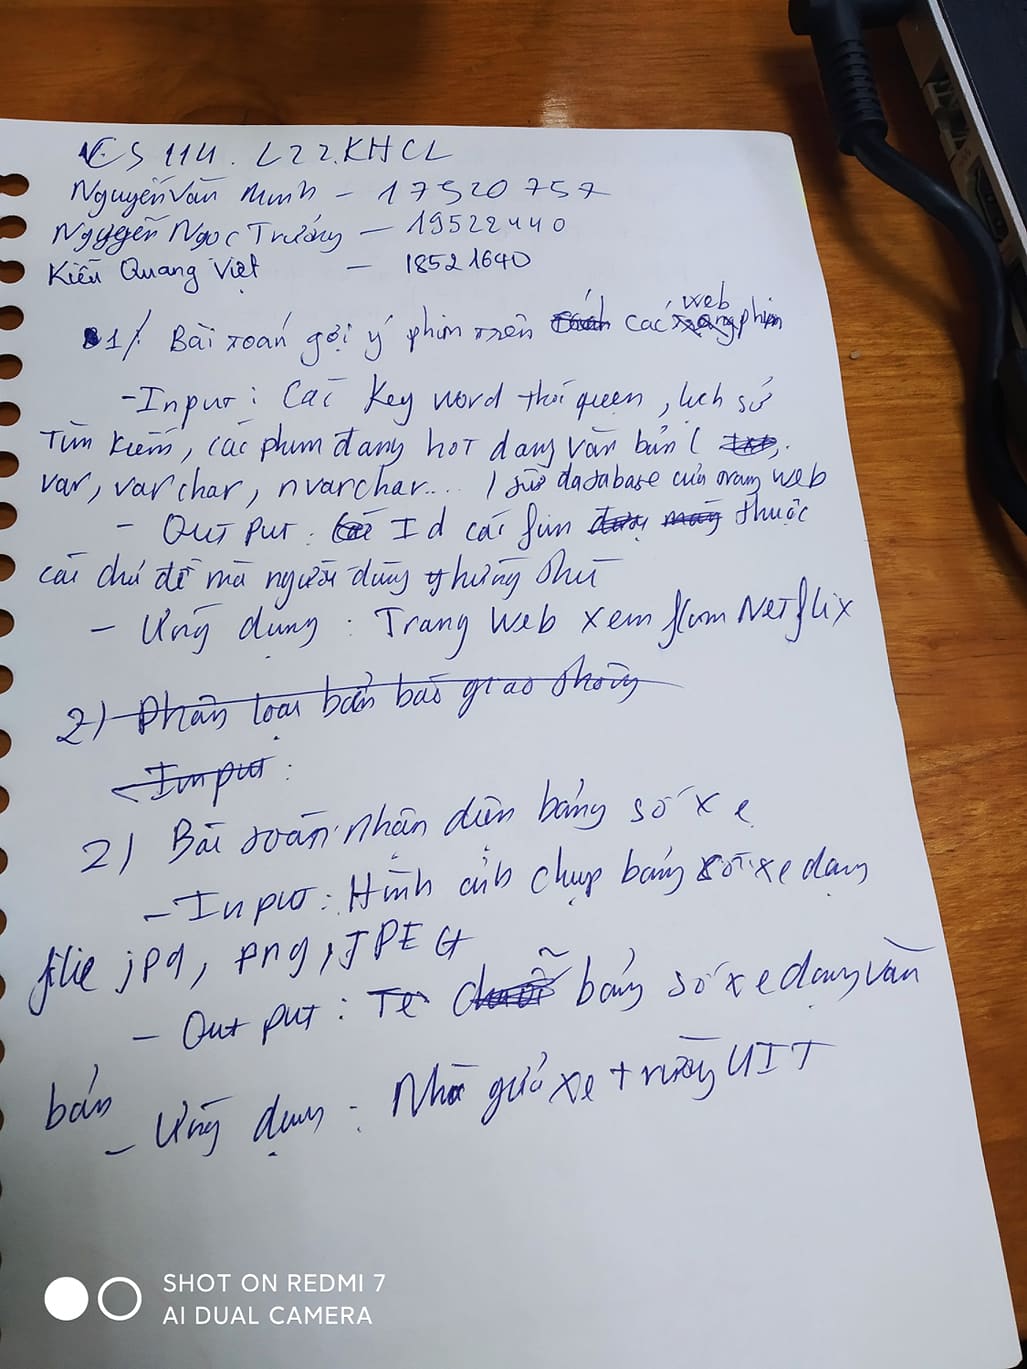 CS 114. L22.KHCL
Nguyễn Văn Minh - 17520757
Nguyễn Ngọc Trưởng - 19522440
Kiều Quang Việt - 18521640
1/. Bài toán gợi ý phim trên các web phim
- Input : Các Key word thói quen, lịch sử
Tìm kiếm, các phim đang hot dạng văn bản (
var, varchar, nvarchar... / từ database của trang web
- Out put : Id các fim thuộc
cái chủ đề mà người dùng hứng thú
- Ứng dụng : Trang Web xem flim Netflix
2) Phân loại bản báo giao thông
Input :
2) Bài toán nhận diện bảng số xe
- Input : Hình ảnh chụp bảng số xe dạng
file jpg, png, JPEG
- Out put : bảng số xe dạng văn
bản
- Ứng dụng : Nhà giữ xe trường UIT
SHOT ON REDMI 7
AI DUAL CAMERA